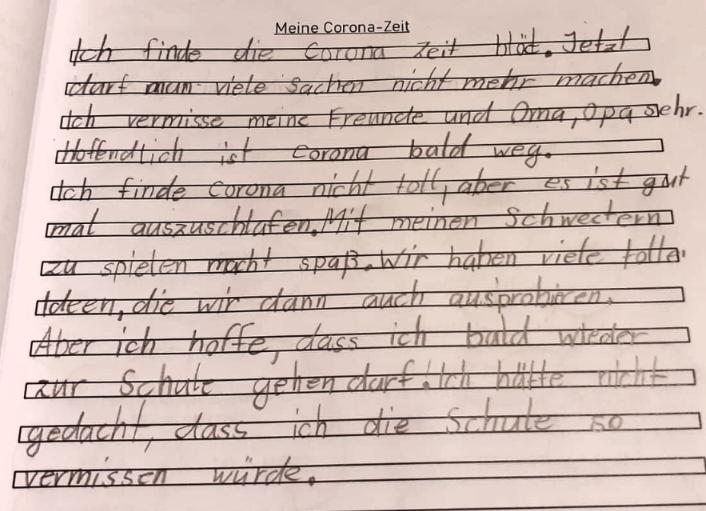 Meine Corona-Zeit
Ich finde die Corona Zeit blöd. Jetzt
darf man viele Sachen nicht mehr machen.
Ich vermisse meine Freunde und Oma, Opa sehr.
Hoffendlich ist corona bald weg.
Ich finde corona nicht toll, aber es ist gut
mal auszuschlafen. Mit meinen Schwestern
zu spielen macht spaß. Wir haben viele tolle
Ideen, die wir dann auch ausprobiren.
Aber ich hoffe, dass ich bald wieder
zur Schule gehen darf. Ich hätte nicht
gedacht, dass ich die Schule so
vermissen würde.